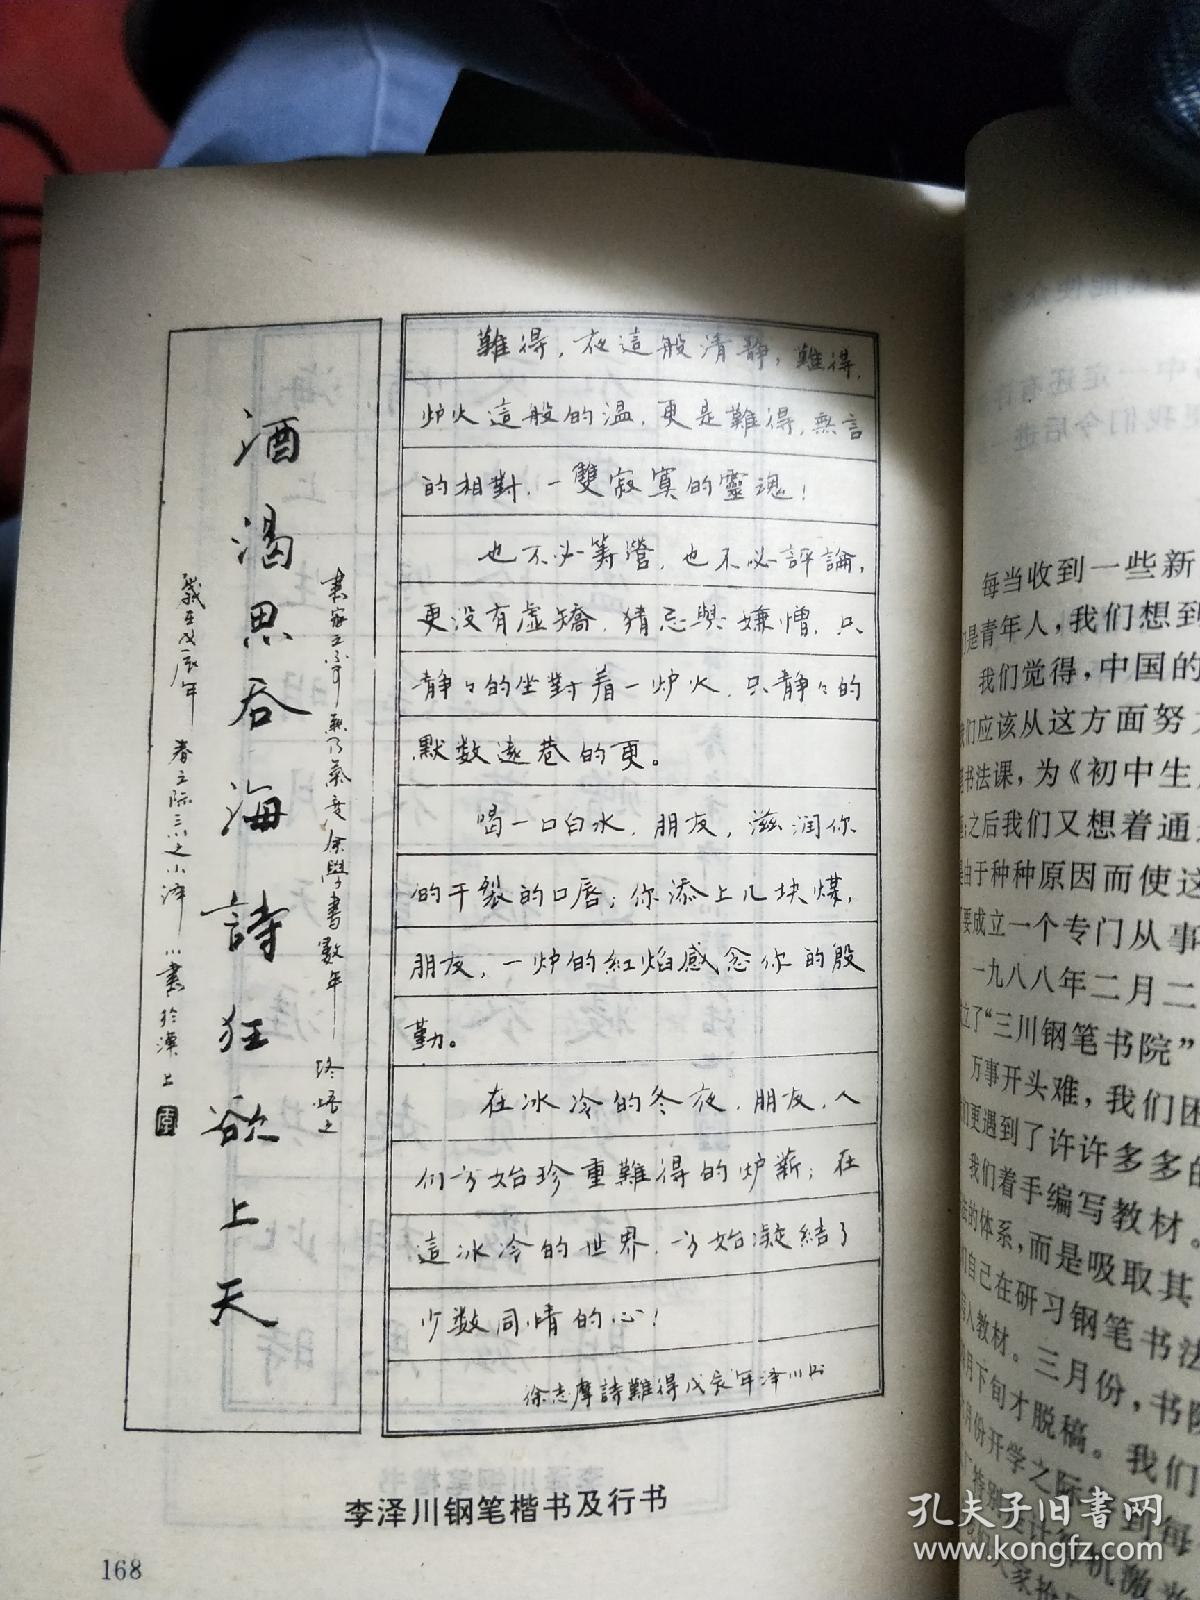 酒渴思吞海詩狂欲上天
難得，夜這般清静，難得，
炉火這般的温，更是難得，無言
的相對，一雙寂寞的靈魂！
也不必筹營，也不必評論，
更没有虚矯，猜忌與嫌憎，只
静々的坐對着一炉火，只静々的
默数遠巷的更。
喝一口白水，朋友，滋润你
的干裂的口唇；你添上几块煤，
朋友，一炉的紅焰感念你的殷
勤。
在冰冷的冬夜，朋友，人
们方始珍重難得的炉薪；在
這冰冷的世界，方始凝結了
少数同情的心！
徐志摩詩難得戊辰年泽川书
李泽川钢笔楷书及行书
168
每当收到一些新
是青年人，我们想到
我们觉得，中国的
们应该从这方面努
书法课，为《初中生
之后我们又想着通
由于种种原因而使这
要成立一个专门从事
一九八八年二月二
立了“三川钢笔书院”
万事开头难，我们困
们更遇到了许许多多的
我们着手编写教材。
的体系，而是吸取其
自己在研习钢笔书法
教材。三月份，书院
月下旬才脱稿。我们
月份开学之际
到每
孔夫子旧书网
www.kongfz.com